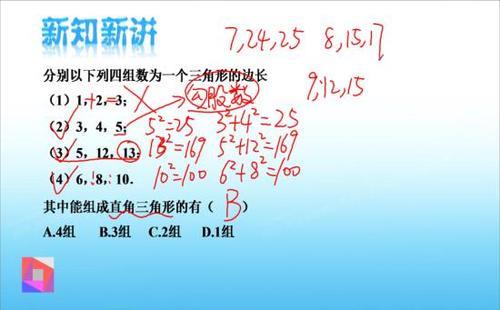 新知新讲
7,24,25 8,15,17
9,12,15
分别以下列四组数为一个三角形的边长
(1) 1，2，3； 勾股数
(2) 3，4，5； 5²=25 3²+4²=25
(3) 5，12，13； 13²=169 5²+12²=169
(4) 6，8，10． 10²=100 6²+8²=100
其中能组成直角三角形的有（ B ）
A.4组 B.3组 C.2组 D.1组